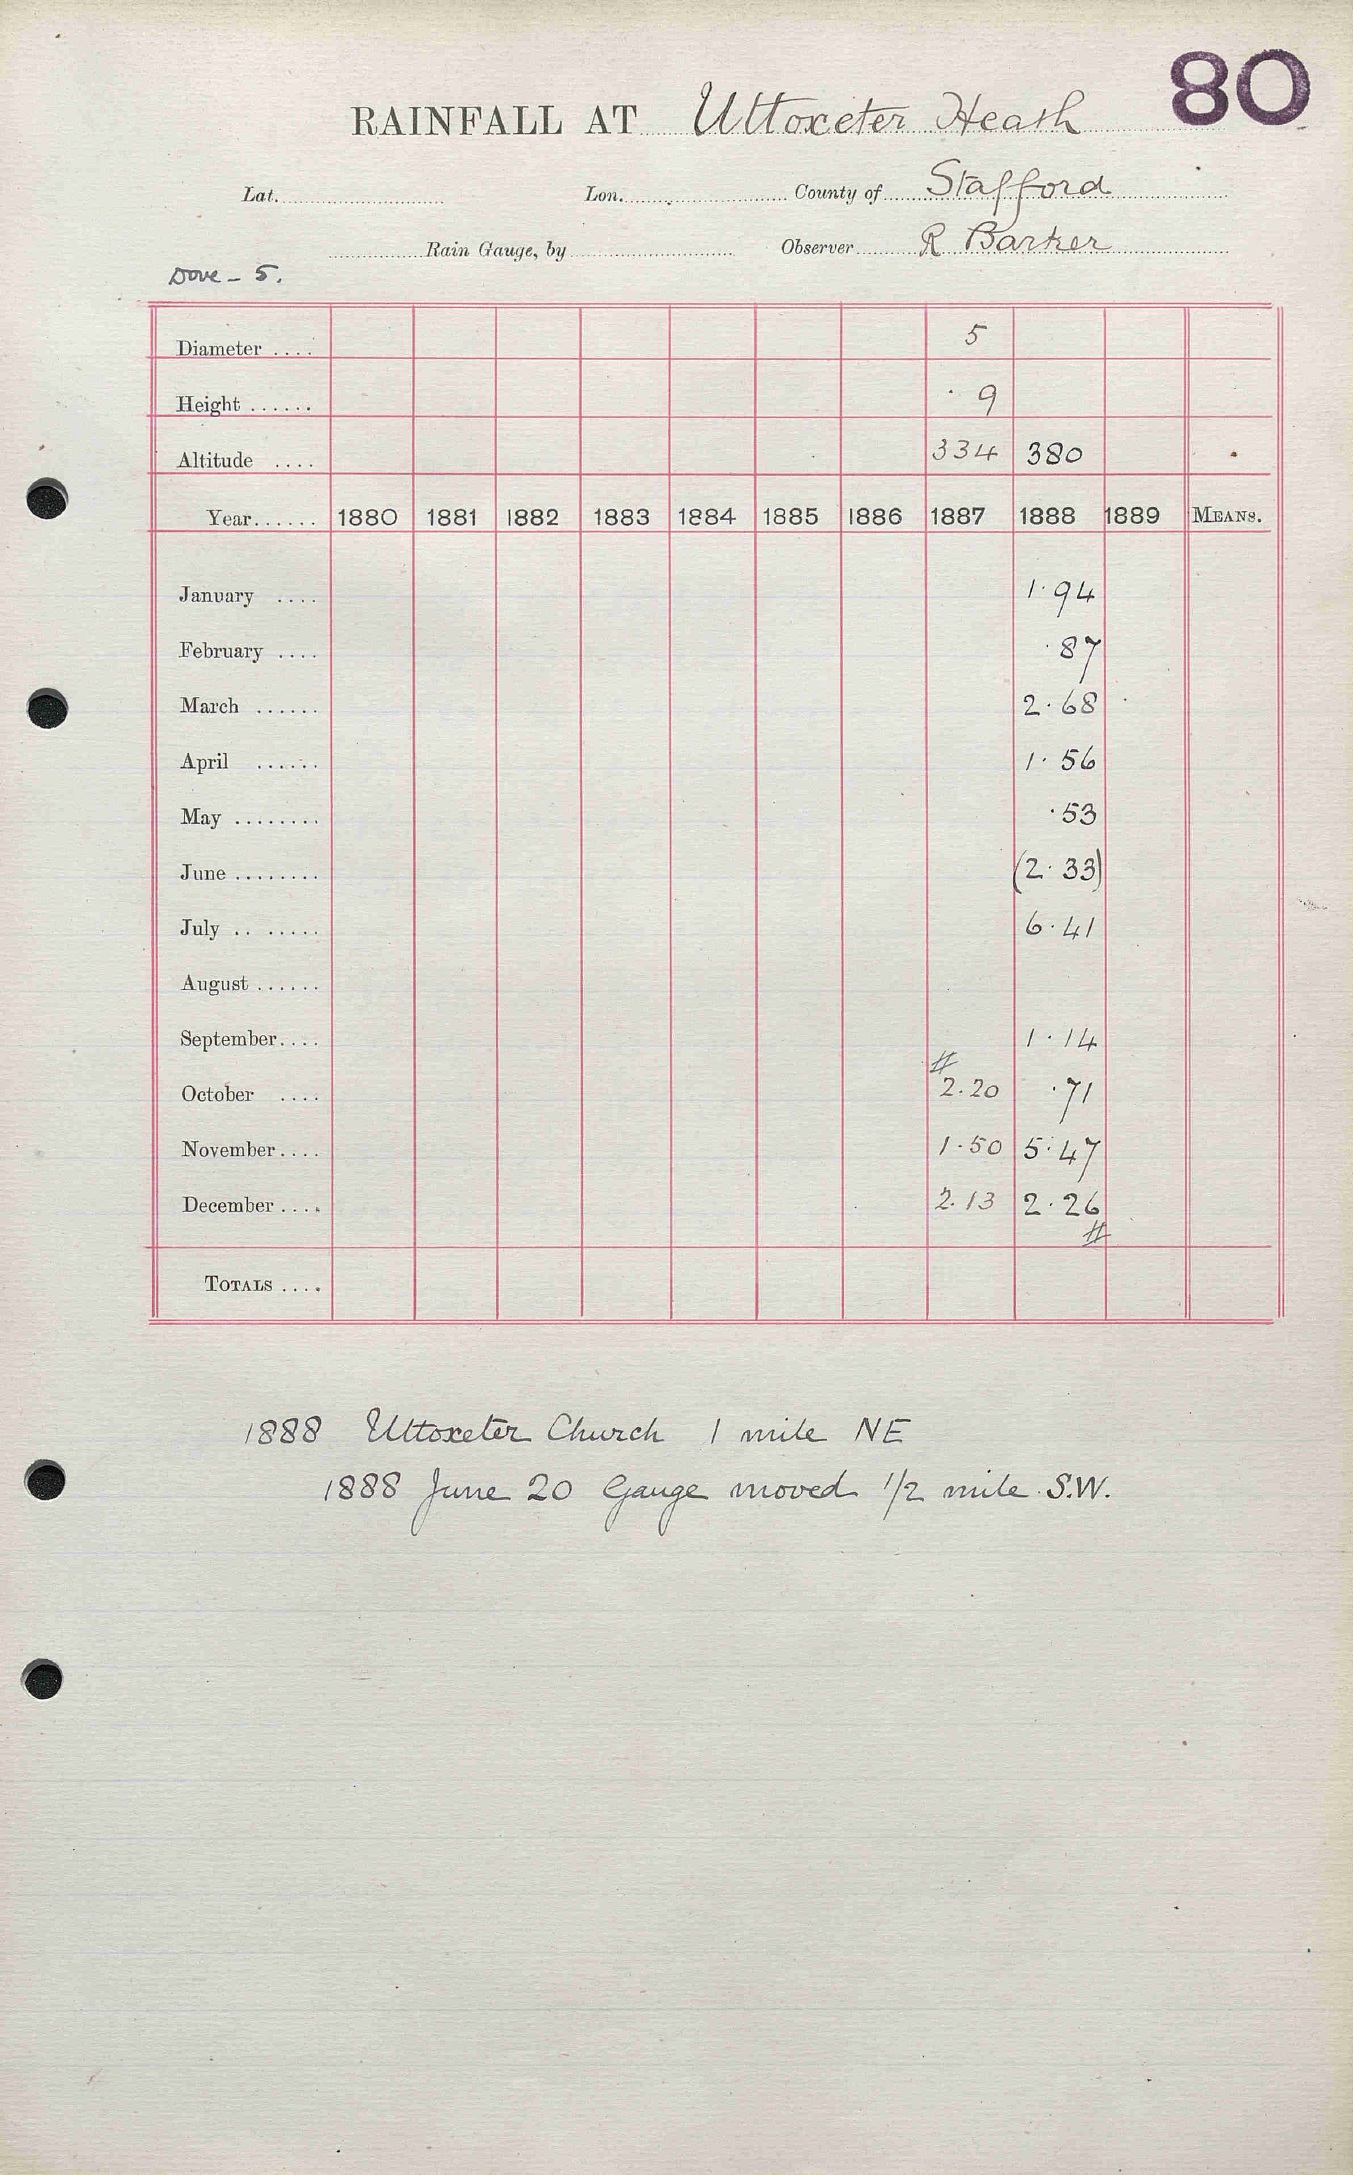 80
RAINFALL AT Uttoxeter Heath
Lat. Lon. County of Stafford
Rain Gauge, by Observer R Barker
Dove - 5.
Diameter .... 5
Height ...... · 9
Altitude .... 334 380
Year...... 1880 1881 1882 1883 1884 1885 1886 1887 1888 1889 MEANS.
January .... 1·94
February .... ·87
March ...... 2·68
April ...... 1·56
May ........ ·53
June ........ (2·33)
July .. ..... 6·41
August ......
September.... 1·14
#
October .... 2.20 ·71
November.... 1·50 5·47
December .... 2.13 2·26
#
TOTALS ....
1888 Uttoxeter Church 1 mile NE
1888 June 20 Gauge moved 1/2 mile S.W.